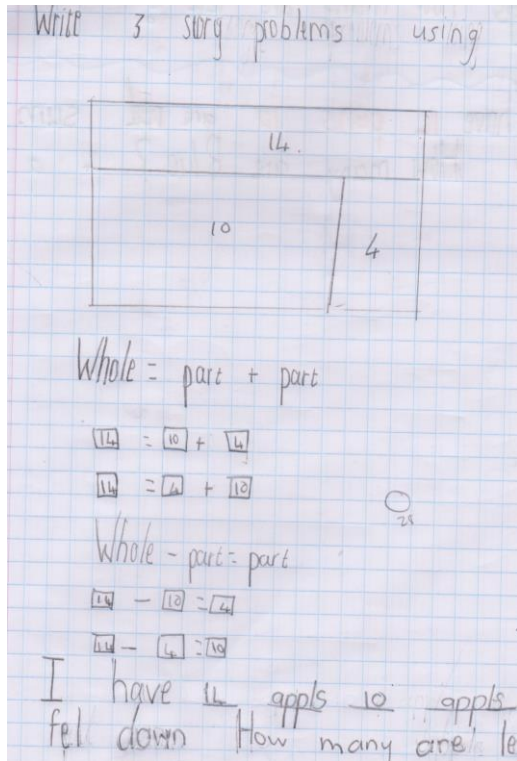 Write 3 story problems using
14.
10
4
Whole = part + part
14 = 10 + 4
14 = 4 + 10
Whole - part = part
14 - 10 = 4
14 - 4 = 10
I have 14 appls 10 appls
fel down How many are le